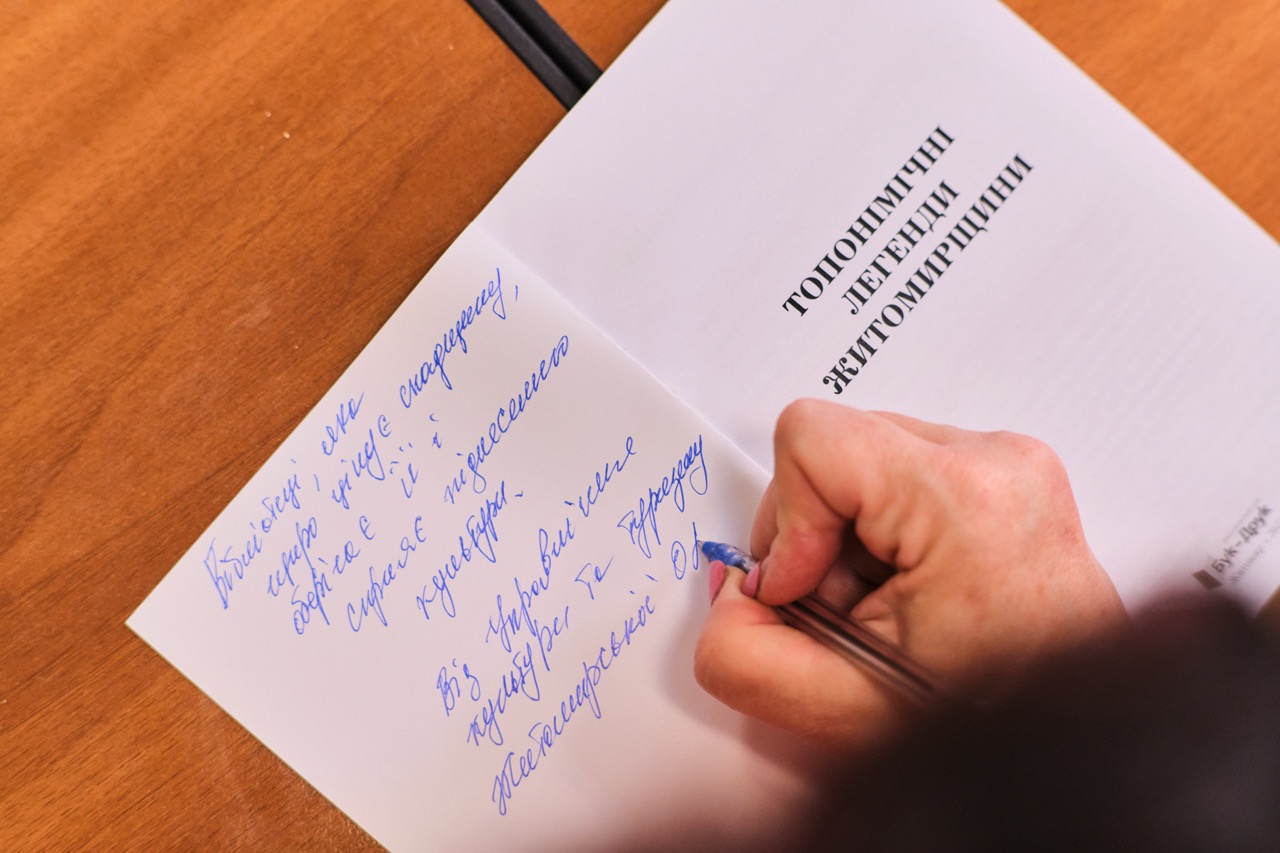 Бібліотеці, яка
щиро цінує спадщину,
оберігає її і
сприяє піднесенню
культури.
Від управління
культури та туризму
Житомирської
ТОПОНІМІЧНІ
ЛЕГЕНДИ
ЖИТОМИРЩИНИ
Бук-Друк